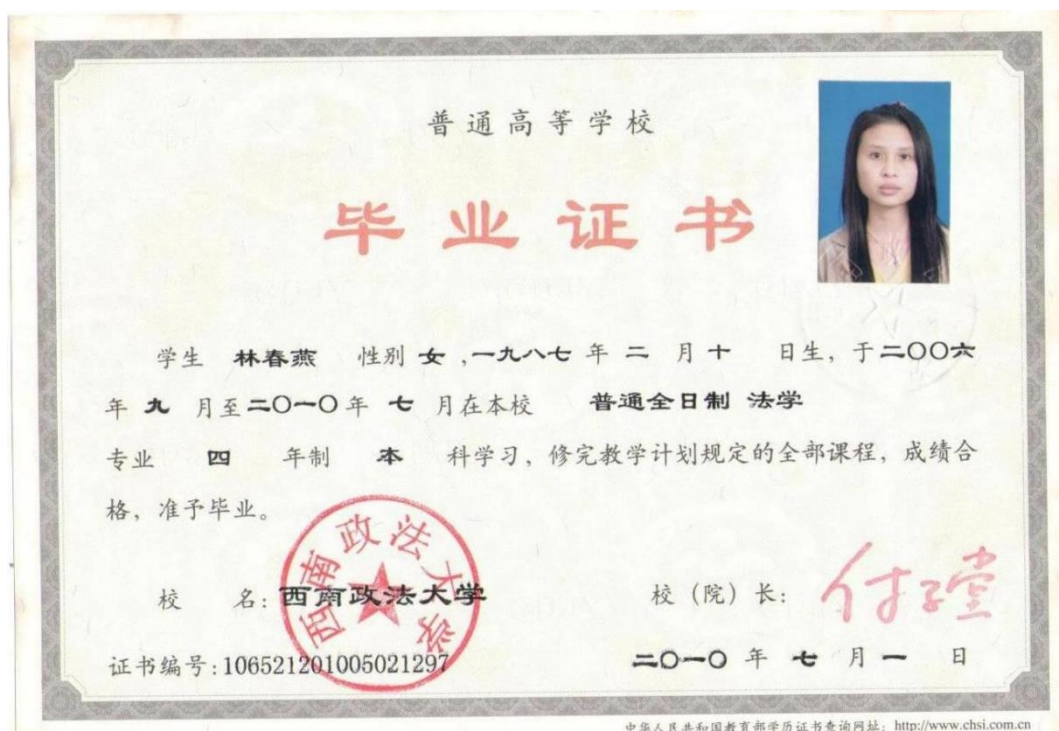 普通高等学校
毕业证书
学生 林春燕 性别 女 ,一九八七 年 二 月 十 日生，于二〇〇六
年 九 月至二〇一〇年 七 月在本校 普通全日制 法学
专业 四 年制 本 科学习，修完教学计划规定的全部课程，成绩合
格，准予毕业。
西南政法大学
校 名：西南政法大学 校（院）长：付子堂
证书编号：106521201005021297 二〇一〇 年 七 月 一 日
中华人民共和国教育部学历证书查询网址：http://www.chsi.com.cn